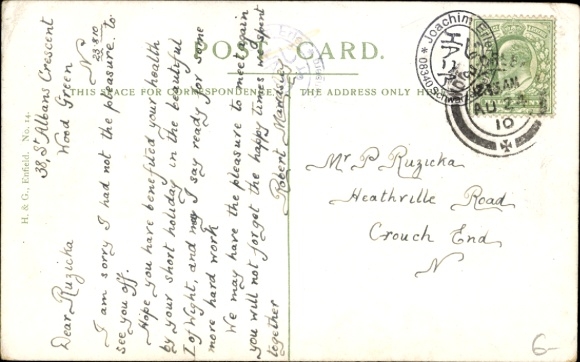 POST CARD.
THIS SPACE FOR CORRESPONDENCE.
THE ADDRESS ONLY H
H & G., Enfield. No. 14.
38, St Albans Crescent
Wood Green
N
23.8.10
Dear Ruzicka
I am sorry I had not the pleasure to
see you off.
Hope you have benefited your health
by your short holiday in the beautiful
I of Wight, and may I say ready for some
more hard work
We may have the pleasure to meet again
you will not forget the happy times we spent
together
Robert
Mr P Ruzicka
Heathville Road
Crouch End
N
* Joachim
08393
AU 24
10
6-